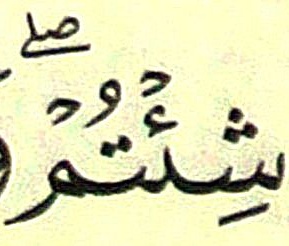 شِئْتُمْ ۖ